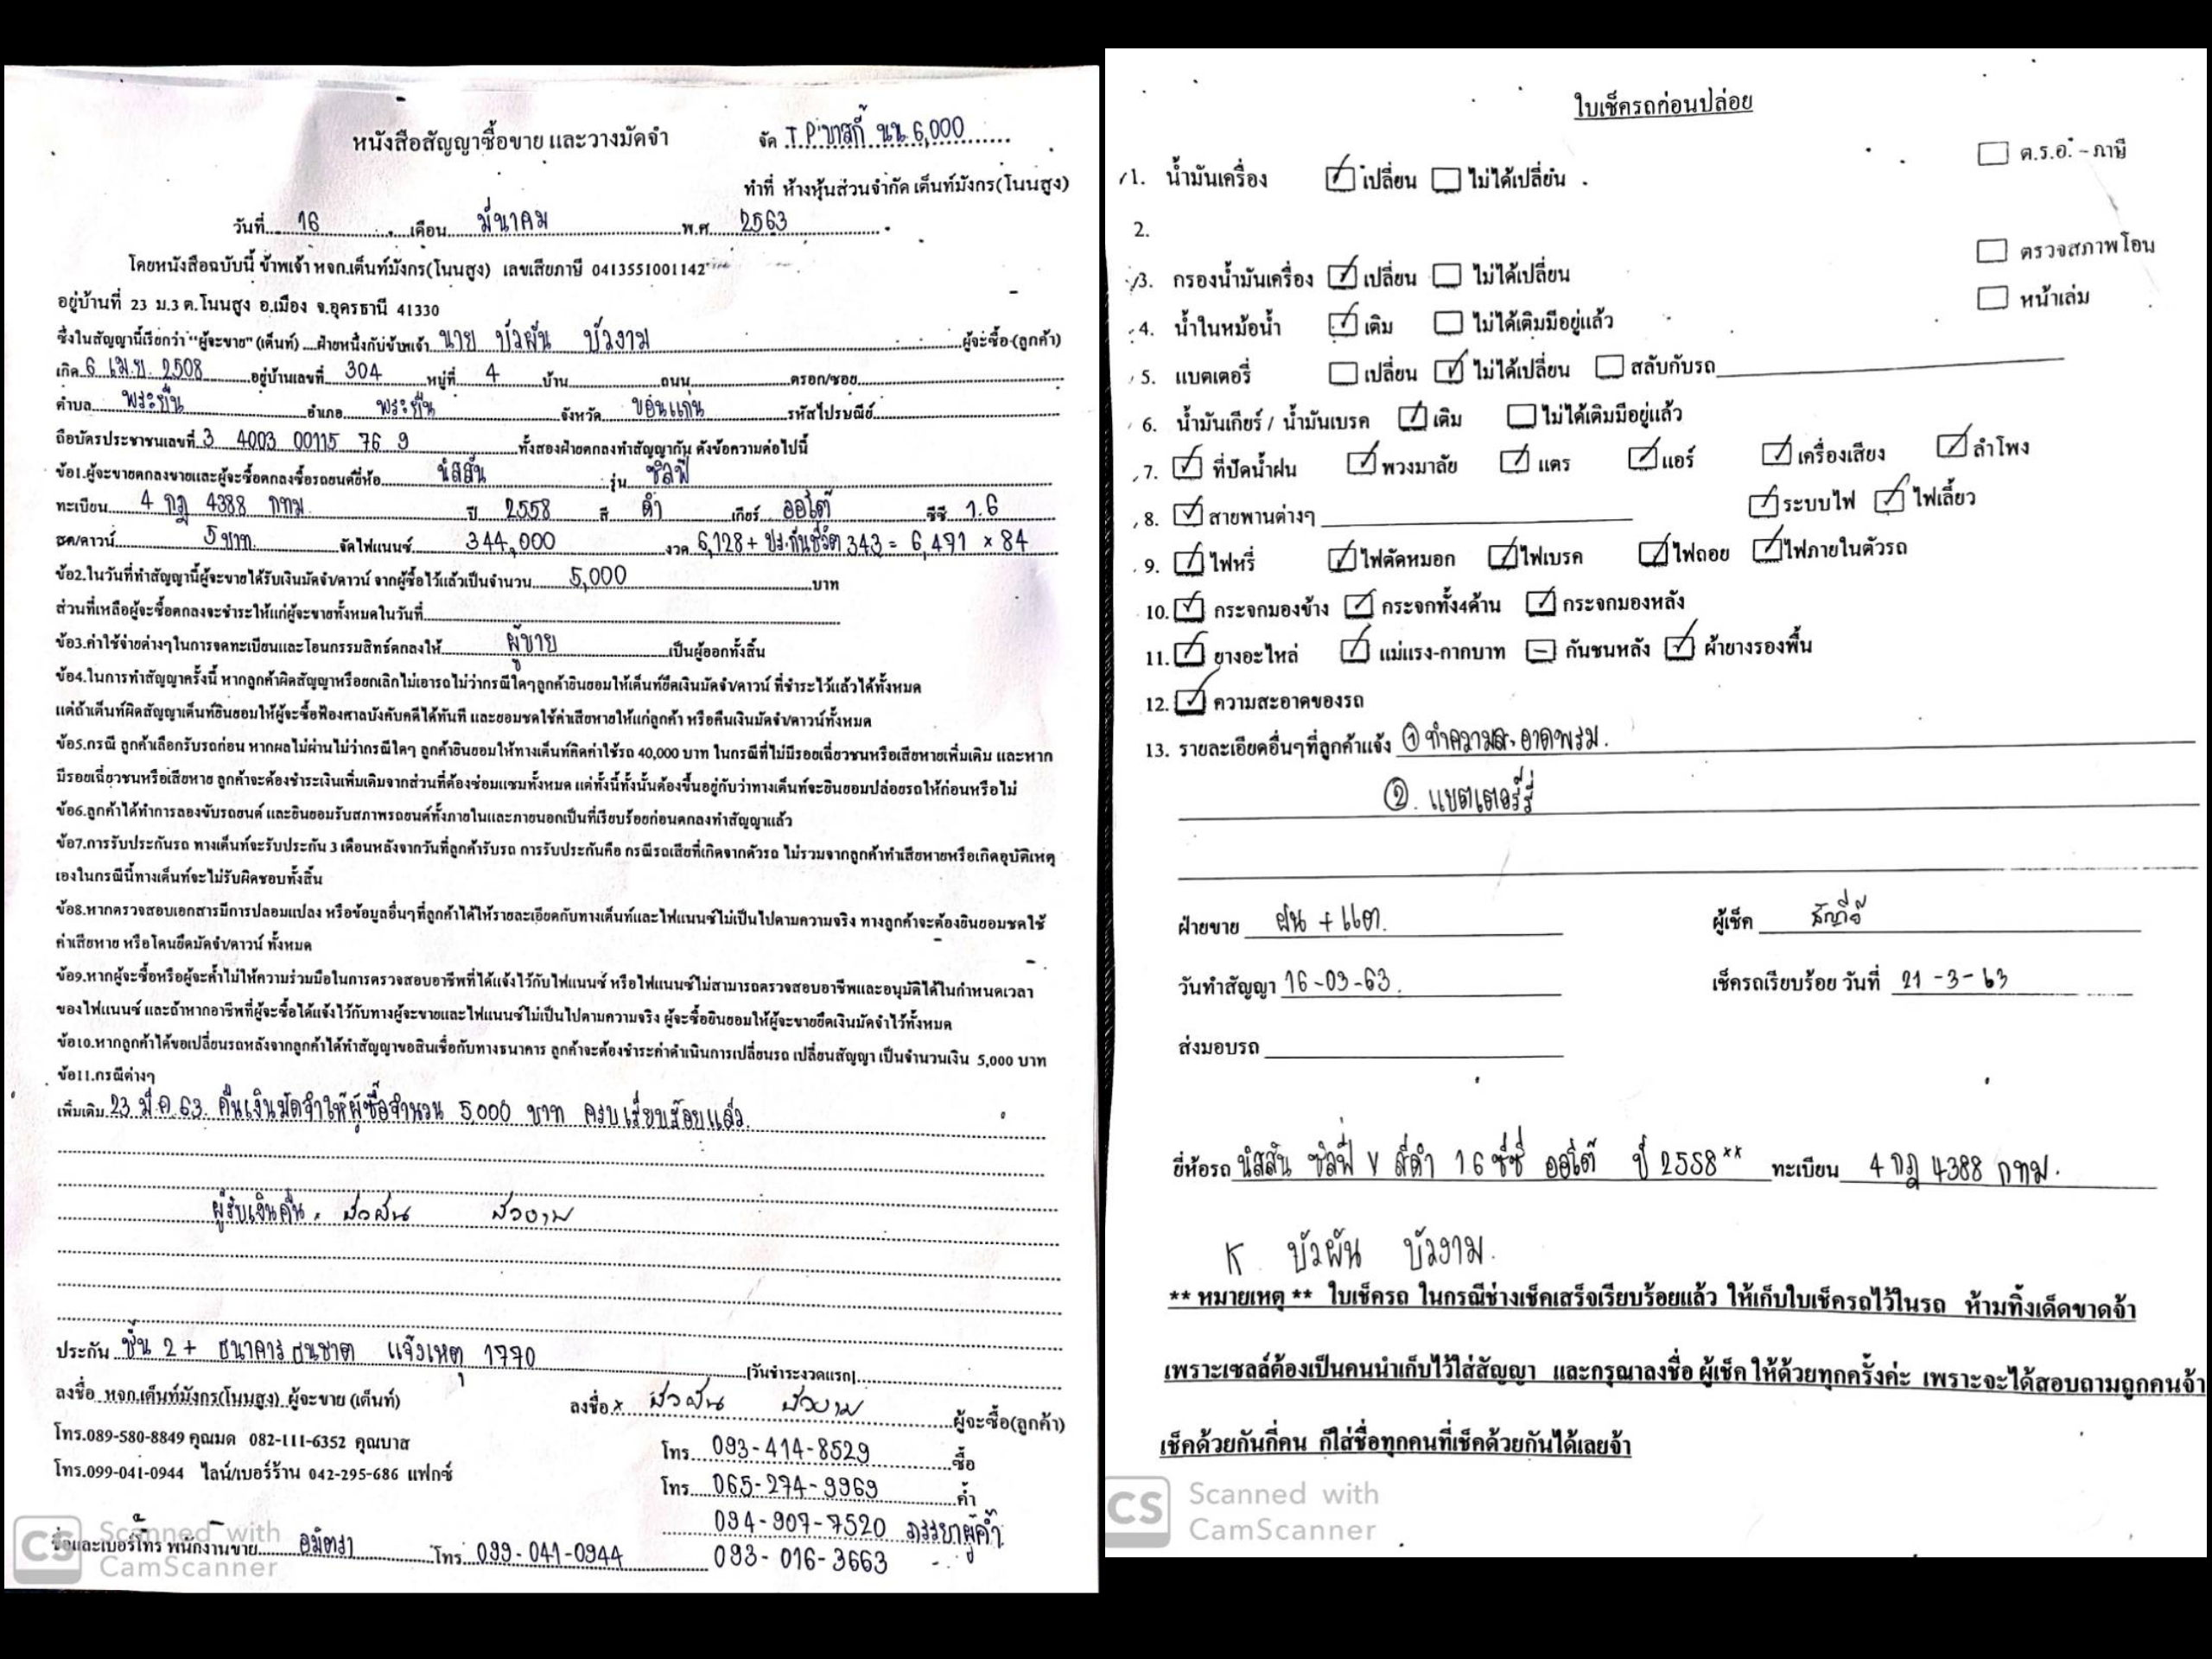 หนังสือสัญญาซื้อขาย และวางมัดจำ
จัด T.P บาสก์ นน 6,000
ทำที่ ห้างหุ้นส่วนจำกัด เต็นท์มังกร(โนนสูง)
วันที่ 16 เดือน มีนาคม พ.ศ. 2563
โดยหนังสือฉบับนี้ ข้าพเจ้า หจก.เต็นท์มังกร(โนนสูง) เลขเสียภาษี 0413551001142
อยู่บ้านที่ 23 ม.3 ต.โนนสูง อ.เมือง จ.อุดรธานี 41330
ซึ่งในสัญญานี้เรียกว่า "ผู้จะขาย" (เต็นท์) ....ฝ่ายหนึ่งกับข้าพเจ้า นาย บัวผัน บัวงาม ผู้จะซื้อ (ลูกค้า)
เกิด 6 เม.ย. 2508 อยู่บ้านเลขที่ 304 หมู่ที่ 4 บ้าน ถนน ตรอก/ซอย
ตำบล พระยืน อำเภอ พระยืน จังหวัด ขอนแก่น รหัสไปรษณีย์
ถือบัตรประชาชนเลขที่ 3 4003 00115 76 9 ทั้งสองฝ่ายตกลงทำสัญญากัน ดังข้อความต่อไปนี้
ข้อ1.ผู้จะขายตกลงขายและผู้จะซื้อตกลงซื้อรถยนต์ยี่ห้อ นิสสัน รุ่น ซิลฟี่
ทะเบียน 4 กฎ 4388 กทม ปี 2558 สี ดำ เกียร์ ออโต้ ซีซี 1.6
สด/ดาวน์ 5 บาท. จัดไฟแนนซ์ 344,000 งวด 6,128 + ปร.กันชีวิต 343 = 6,471 × 84
ข้อ2.ในวันที่ทำสัญญานี้ผู้จะขายได้รับเงินมัดจำ/ดาวน์ จากผู้ซื้อไว้แล้วเป็นจำนวน 5,000 บาท
ส่วนที่เหลือผู้จะซื้อตกลงจะชำระให้แก่ผู้จะขายทั้งหมดในวันที่
ข้อ3.ค่าใช้จ่ายต่างๆในการจดทะเบียนและโอนกรรมสิทธ์ตกลงให้ ผู้ขาย เป็นผู้ออกทั้งสิ้น
ข้อ4.ในการทำสัญญาครั้งนี้ หากลูกค้าผิดสัญญาหรือยกเลิกไม่เอารถไม่ว่ากรณีใดๆลูกค้ายินยอมให้เต็นท์ยึดเงินมัดจำ/ดาวน์ ที่ชำระไว้แล้วได้ทั้งหมด
แต่ถ้าเต็นท์ผิดสัญญาเต็นท์ยินยอมให้ผู้จะซื้อฟ้องศาลบังคับคดีได้ทันที และยอมชดใช้ค่าเสียหายให้แก่ลูกค้า หรือคืนเงินมัดจำ/ดาวน์ทั้งหมด
ข้อ5.กรณี ลูกค้าเลือกรับรถก่อน หากผลไม่ผ่านไม่ว่ากรณีใดๆ ลูกค้ายินยอมให้ทางเต็นท์คิดค่าใช้รถ 40,000 บาท ในกรณีที่ไม่มีรอยเฉี่ยวชนหรือเสียหายเพิ่มเติม และหาก
มีรอยเฉี่ยวชนหรือเสียหาย ลูกค้าจะต้องชำระเงินเพิ่มเติมจากส่วนที่ต้องซ่อมแซมทั้งหมด แต่ทั้งนี้ทั้งนั้นต้องขึ้นอยู่กับว่าทางเต็นท์จะยินยอมปล่อยรถให้ก่อนหรือไม่
ข้อ6.ลูกค้าได้ทำการลองขับรถยนต์ และยินยอมรับสภาพรถยนต์ทั้งภายในและภายนอกเป็นที่เรียบร้อยก่อนตกลงทำสัญญาแล้ว
ข้อ7.การรับประกันรถ ทางเต็นท์จะรับประกัน 3 เดือนหลังจากวันที่ลูกค้ารับรถ การรับประกันคือ กรณีรถเสียที่เกิดจากตัวรถ ไม่รวมจากลูกค้าทำเสียหายหรือเกิดอุบัติเหตุ
เองในกรณีนี้ทางเต็นท์จะไม่รับผิดชอบทั้งสิ้น
ข้อ8.หากตรวจสอบเอกสารมีการปลอมแปลง หรือข้อมูลอื่นๆที่ลูกค้าได้ให้รายละเอียดกับทางเต็นท์และไฟแนนซ์ไม่เป็นไปตามความจริง ทางลูกค้าจะต้องยินยอมชดใช้
ค่าเสียหาย หรือโดนยึดมัดจำ/ดาวน์ ทั้งหมด
ข้อ9.หากผู้จะซื้อหรือผู้จะค้ำไม่ให้ความร่วมมือในการตรวจสอบอาชีพที่ได้แจ้งไว้กับไฟแนนซ์ หรือไฟแนนซ์ไม่สามารถตรวจสอบอาชีพและอนุมัติได้ในกำหนดเวลา
ของไฟแนนซ์ และถ้าหากอาชีพที่ผู้จะซื้อได้แจ้งไว้กับทางผู้จะขายและไฟแนนซ์ไม่เป็นไปตามความจริง ผู้จะซื้อยินยอมให้ผู้จะขายยึดเงินมัดจำไว้ทั้งหมด
ข้อ10.หากลูกค้าได้ขอเปลี่ยนรถหลังจากลูกค้าได้ทำสัญญาขอสินเชื่อกับทางธนาคาร ลูกค้าจะต้องชำระค่าดำเนินการเปลี่ยนรถ เปลี่ยนสัญญา เป็นจำนวนเงิน 5,000 บาท
ข้อ11.กรณีต่างๆ
เพิ่มเติม 23 มี.ค.63. คืนเงินมัดจำให้ผู้ซื้อจำนวน 5,000 บาท ครบเรียบร้อยแล้ว.
ผู้รับเงินคืน. บัวผัน บัวงาม
ประกัน ชั้น 2+ ธนาคารธนชาต แจ้งเหตุ 1770 [วันชำระงวดแรก]
ลงชื่อ หจก.เต็นท์มังกร(โนนสูง) ผู้จะขาย (เต็นท์) ลงชื่อ × บัวผัน บัวงาม ผู้จะซื้อ(ลูกค้า)
โทร.089-580-8849 คุณมด 082-111-6352 คุณบาส โทร. 093-414-8529 ซื้อ
โทร.099-041-0944 ไลน์/เบอร์ร้าน 042-295-686 แฟกซ์ โทร. 065-274-9969 ค้ำ
094-907-7520 ภรรยาผู้ค้ำ
ชื่อและเบอร์โทร พนักงานขาย โทร. 099-041-0944 093-016-3663
CS Scanned with CamScanner
ใบเช็ครถก่อนปล่อย
ต.ร.อ. - ภาษี
1. น้ำมันเครื่อง เปลี่ยน ไม่ได้เปลี่ยน
2.
ตรวจสภาพโอน
3. กรองน้ำมันเครื่อง เปลี่ยน ไม่ได้เปลี่ยน
หน้าเล่ม
4. น้ำในหม้อน้ำ เติม ไม่ได้เติมมีอยู่แล้ว
5. แบตเตอรี่ เปลี่ยน ไม่ได้เปลี่ยน สลับกับรถ
6. น้ำมันเกียร์ / น้ำมันเบรค เติม ไม่ได้เติมมีอยู่แล้ว
7. ที่ปัดน้ำฝน พวงมาลัย แตร แอร์ เครื่องเสียง ลำโพง
8. สายพานต่างๆ ระบบไฟ ไฟเลี้ยว
9. ไฟหรี่ ไฟตัดหมอก ไฟเบรค ไฟถอย ไฟภายในตัวรถ
10. กระจกมองข้าง กระจกทั้ง4ด้าน กระจกมองหลัง
11. ยางอะไหล่ แม่แรง-กากบาท กันชนหลัง ผ้ายางรองพื้น
12. ความสะอาดของรถ
13. รายละเอียดอื่นๆที่ลูกค้าแจ้ง ① ทำความสะอาดพรม.
②. แบตเตอร์รี่
ฝ่ายขาย ฝน + แต. ผู้เช็ค
วันทำสัญญา 16-03-63. เช็ครถเรียบร้อย วันที่ 21-3-63
ส่งมอบรถ
ยี่ห้อรถ นิสสัน ซิลฟี่ V สีดำ 1.6 ซีซี ออโต้ ปี 2558** ทะเบียน 4 กฎ 4388 กทม.
K บัวผัน บัวงาม.
** หมายเหตุ ** ใบเช็ครถ ในกรณีช่างเช็คเสร็จเรียบร้อยแล้ว ให้เก็บใบเช็ครถไว้ในรถ ห้ามทิ้งเด็ดขาดจ้า
เพราะเซลล์ต้องเป็นคนนำเก็บไว้ใส่สัญญา และกรุณาลงชื่อ ผู้เช็ค ให้ด้วยทุกครั้งค่ะ เพราะจะได้สอบถามถูกคนจ้า
เช็คด้วยกันกี่คน ก็ใส่ชื่อทุกคนที่เช็คด้วยกันได้เลยจ้า
CS Scanned with CamScanner